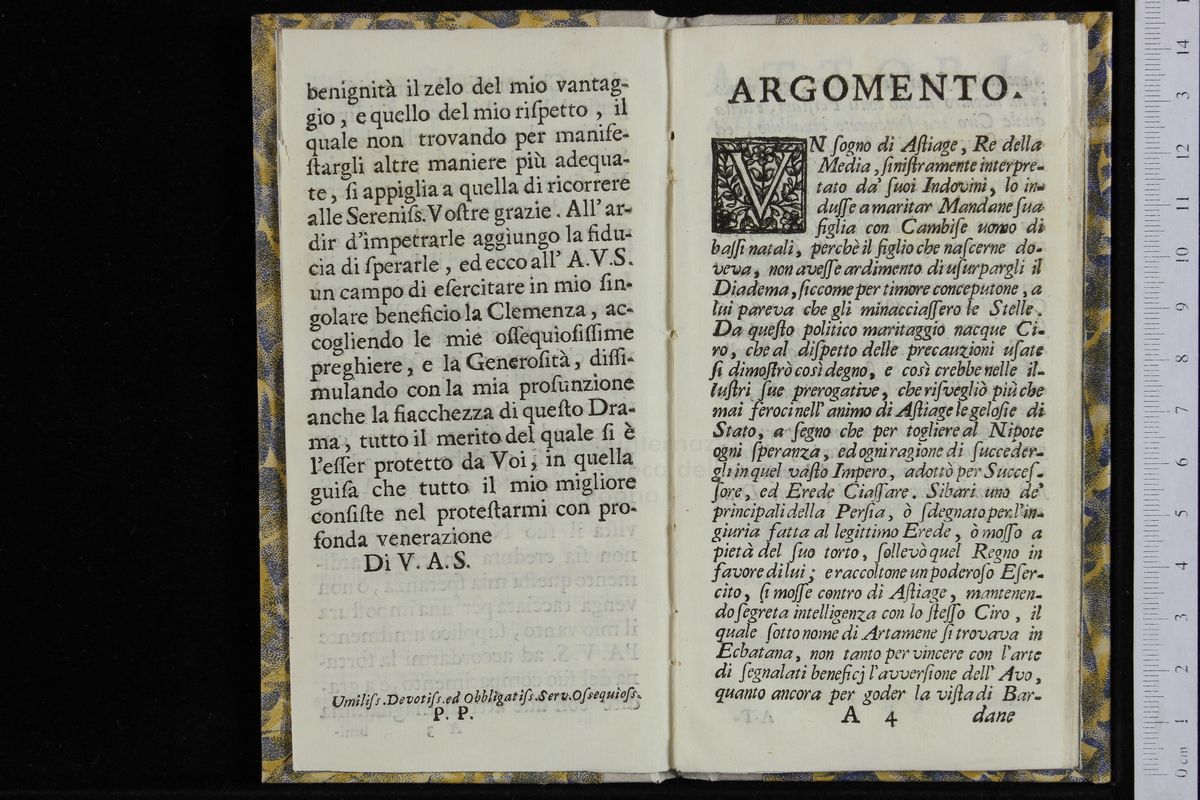 benignità il zelo del mio vantag-
gio, e quello del mio riſpetto, il
quale non trovando per manife-
ſtargli altre maniere più adequa-
te, ſi appiglia a quella di ricorrere
alle Sereniſs. Voſtre grazie. All' ar-
dir d'impetrarle aggiungo la fidu-
cia di ſperarle, ed ecco all' A.V.S.
un campo di eſercitare in mio ſin-
golare beneficio la Clemenza, ac-
cogliendo le mie oſſequioſiſſime
preghiere, e la Generoſità, diſſi-
mulando con la mia proſunzione
anche la fiacchezza di queſto Dra-
ma, tutto il merito del quale ſi è
l'eſſer protetto da Voi, in quella
guiſa che tutto il mio migliore
conſiſte nel proteſtarmi con pro-
fonda venerazione
Di V. A. S.
Umiliſs. Devotiſs. ed Obbligatiſs. Serv. Oſsequioſs.
P. P.
ARGOMENTO.
VN ſogno di Aſtiage, Re della
Media, ſiniſtramente interpre-
tato da' ſuoi Indovini, lo in-
duſſe a maritar Mandane ſua
figlia con Cambiſe uomo di
baſſi natali, perchè il figlio che naſcerne do-
veva, non aveſſe ardimento di uſurpargli il
Diadema, ſiccome per timore conceputone, a
lui pareva che gli minacciaſſero le Stelle.
Da queſto politico maritaggio nacque Ci-
ro, che al diſpetto delle precauzioni uſate
ſi dimoſtrò così degno, e così crebbe nelle il-
luſtri ſue prerogative, che riſvegliò più che
mai feroci nell' animo di Aſtiage le geloſie di
Stato, a ſegno che per togliere al Nipote
ogni ſperanza, ed ogni ragione di ſucceder-
gli in quel vaſto Impero, adottò per Succeſ-
ſore, ed Erede Ciaſſare. Sibari uno de'
principali della Perſia, ò ſdegnato per l'in-
giuria fatta al legittimo Erede, ò moſſo a
pietà del ſuo torto, ſollevò quel Regno in
favore di lui; e raccoltone un poderoſo Eſer-
cito, ſi moſſe contro di Aſtiage, mantenen-
do ſegreta intelligenza con lo ſteſſo Ciro, il
quale ſotto nome di Artamene ſi trovava in
Ecbatana, non tanto per vincere con l'arte
di ſegnalati beneficj l'avverſione dell' Avo,
quanto ancora per goder la viſta di Bar-
A 4 dane